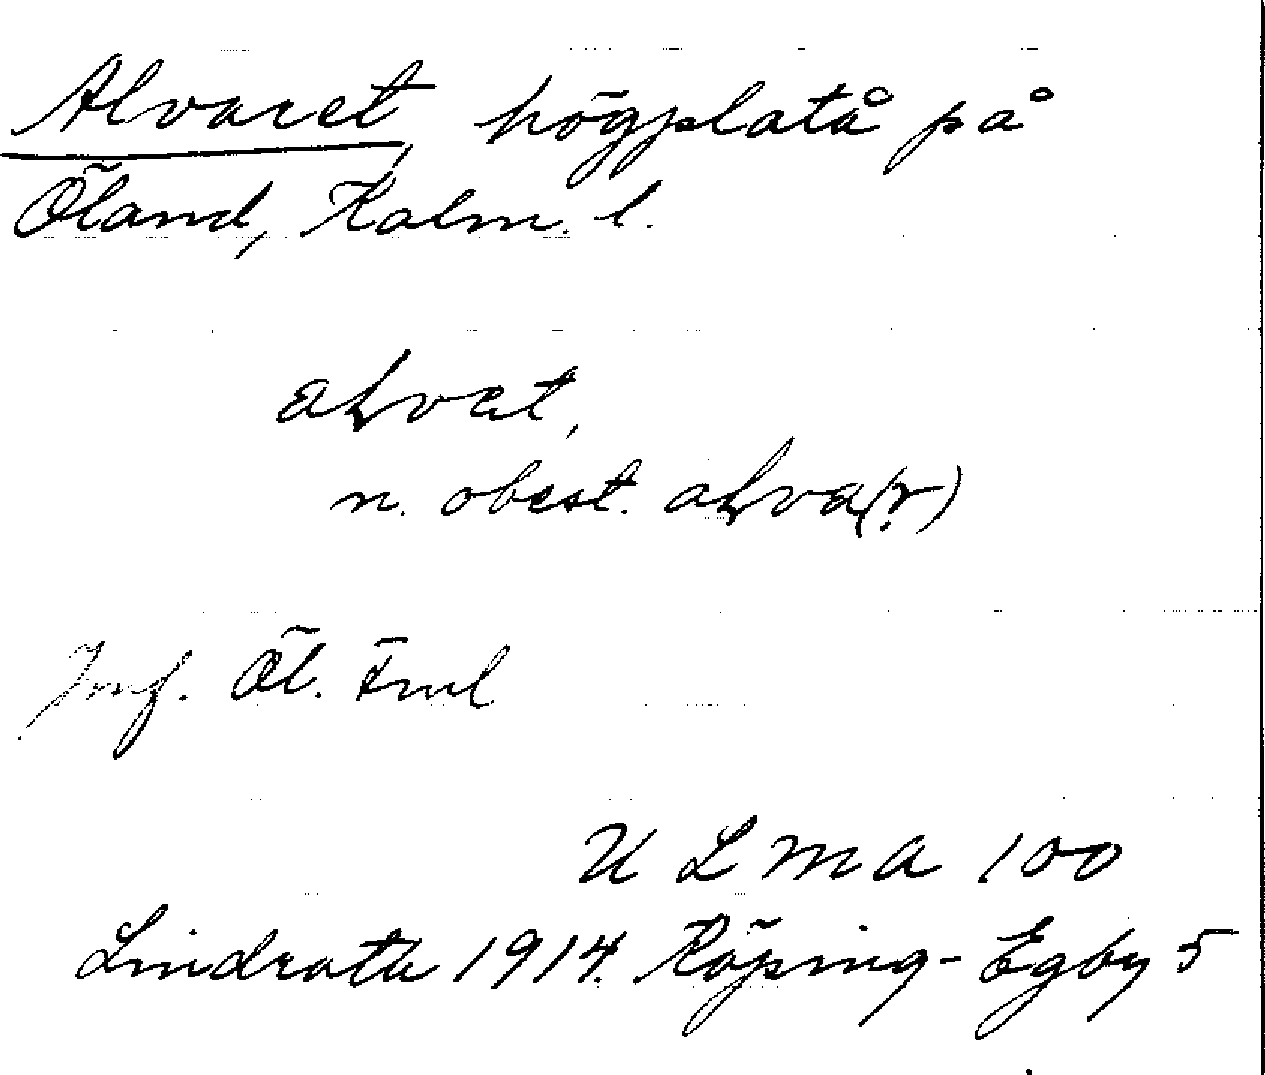 Alvaret, högplatå på
Öland, Kalm. l.
alvat,
n. obest. alva(r)
Jmf. Öl. Fml
ULMA 100
Lindroth 1914. Köping-Egby 5